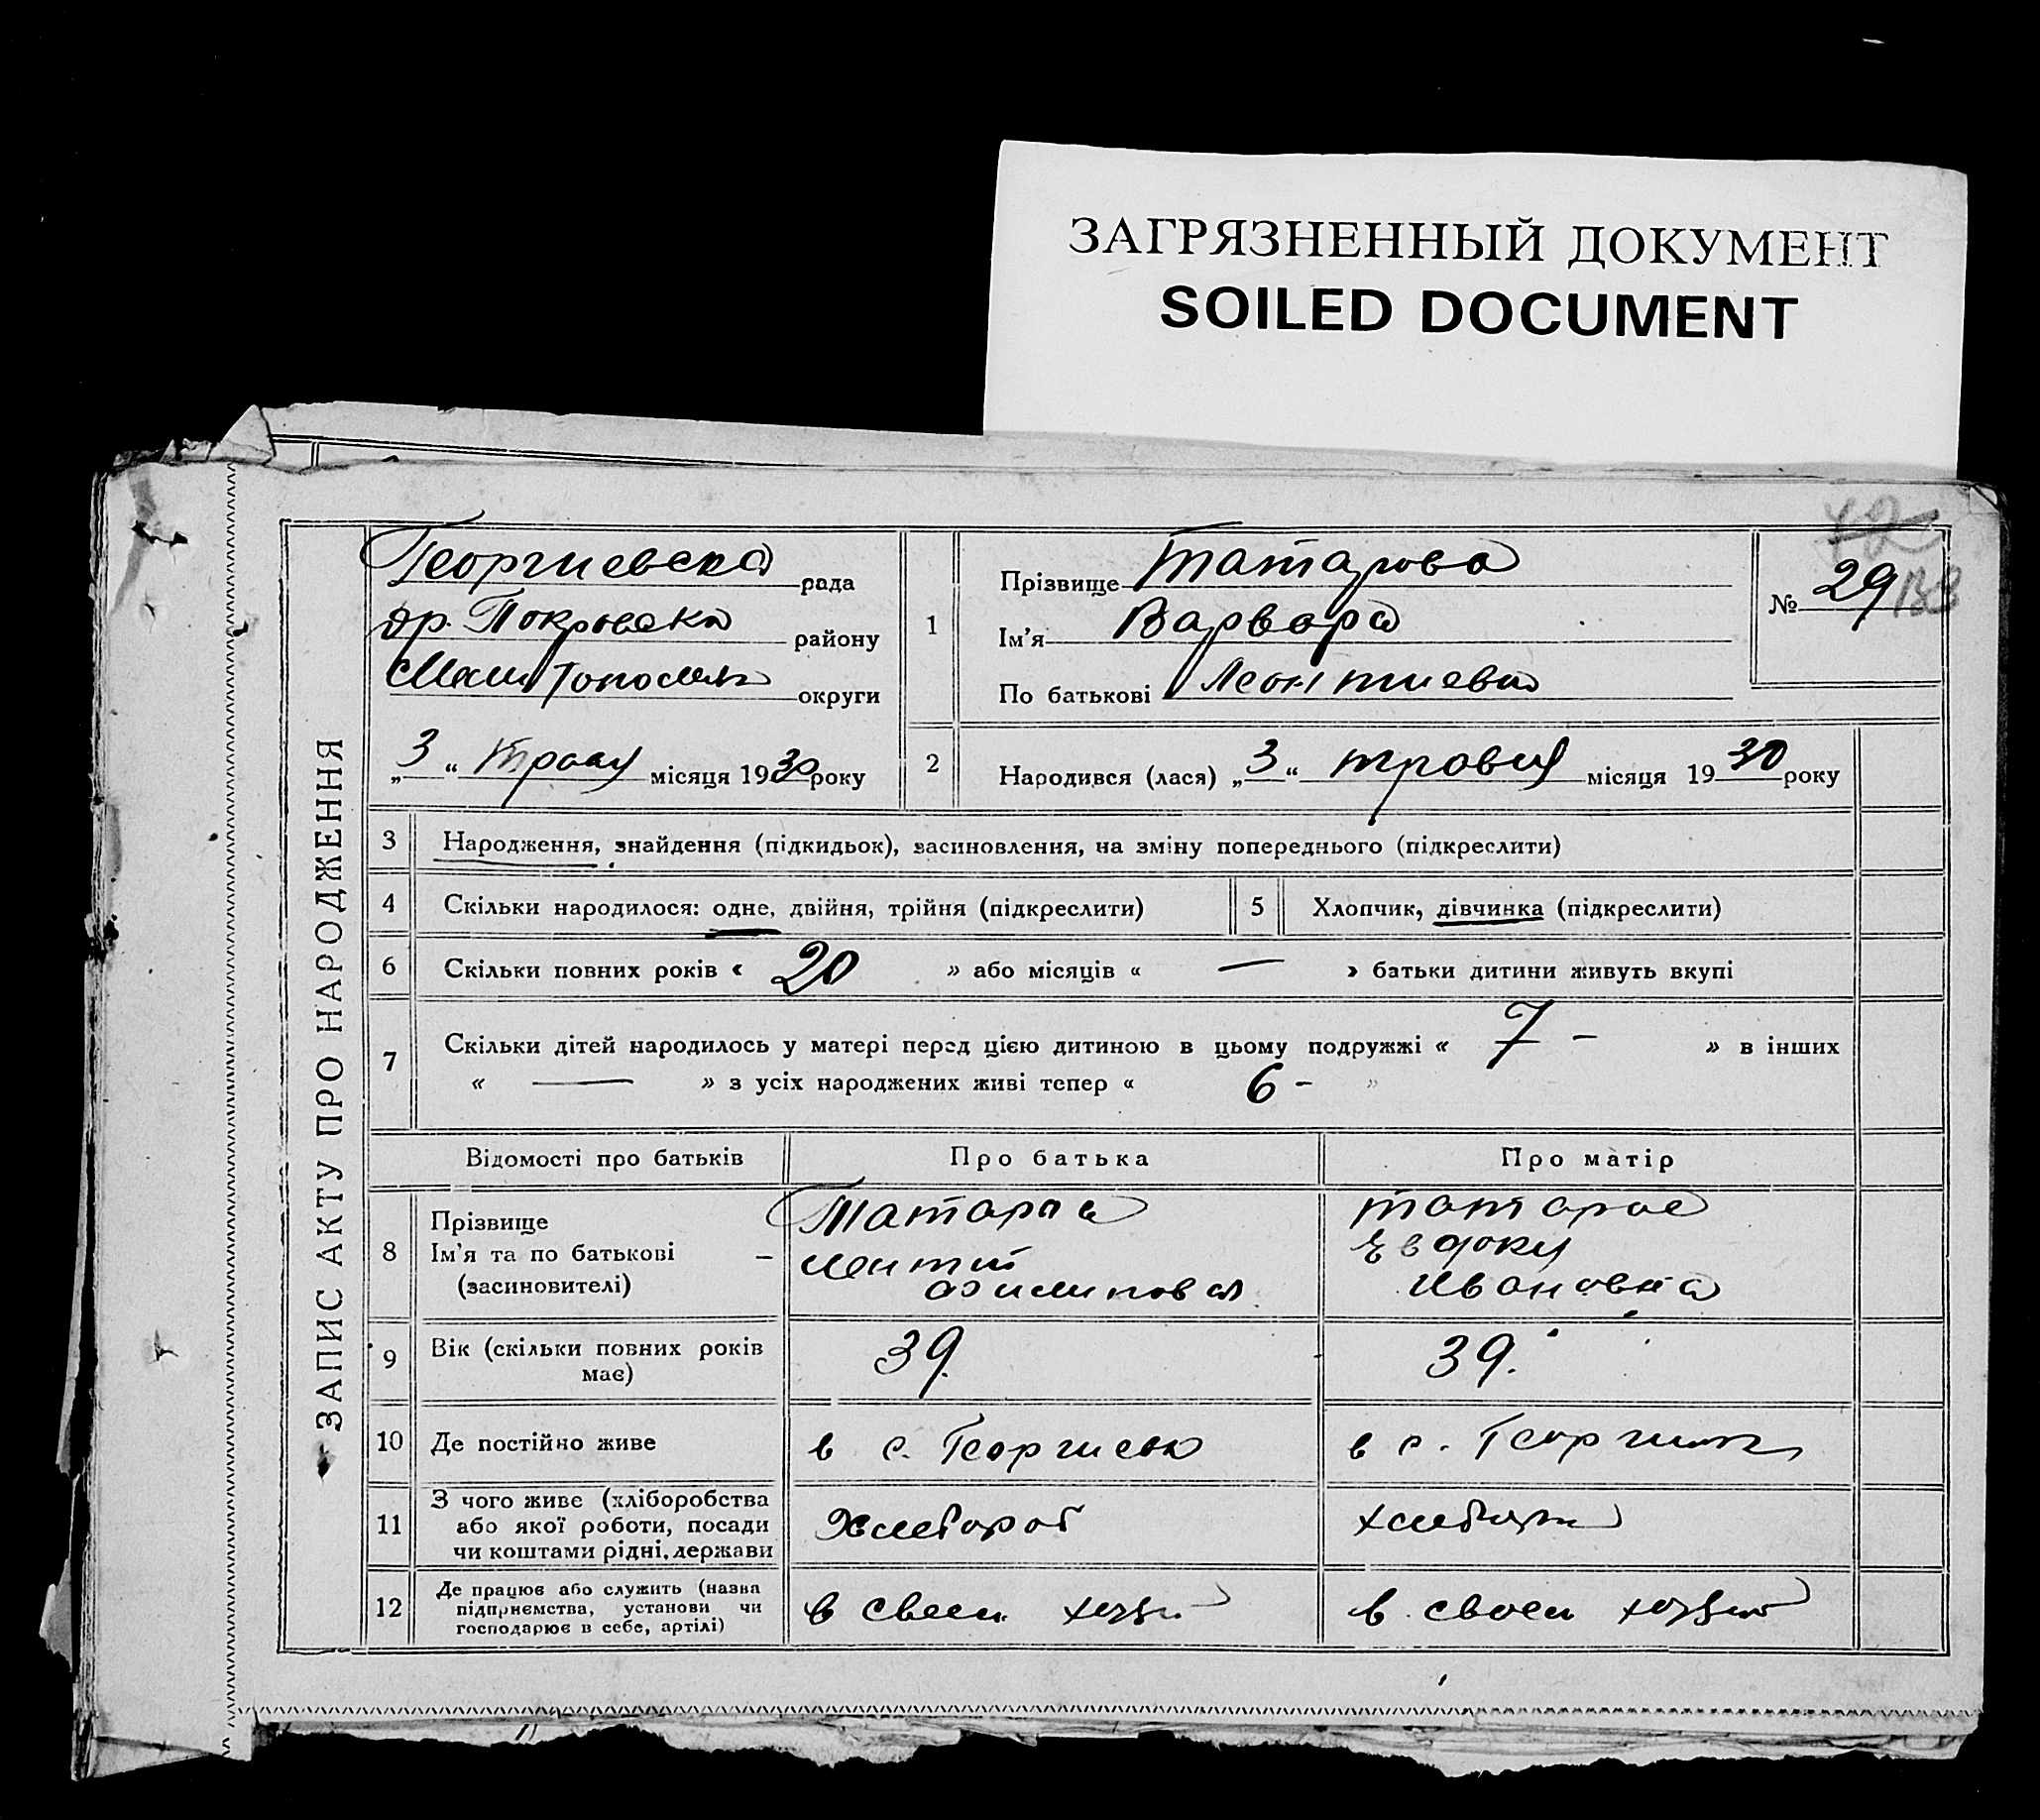 ЗАГРЯЗНЕННЫЙ ДОКУМЕНТ
SOILED DOCUMENT
ЗАПИС АКТУ ПРО НАРОДЖЕННЯ
Георгиевска рада
Покровска району
округи
„3“ місяця 1930 року
42
№ 29
1 Прізвище Татарова
Ім'я Варвара
По батькові Леонтиевна
2 Народився (лася) „3“ травня місяця 1930 року
3 Народження, знайдення (підкидьок), засиновлення, на зміну попереднього (підкреслити)
4 Скільки народилося: одне, двійня, трійня (підкреслити)
5 Хлопчик, дівчинка (підкреслити)
6 Скільки повних років « 20 » або місяців « — » батьки дитини живуть вкупі
7 Скільки дітей народилось у матері перед цією дитиною в цьому подружжі « 7 – » в інших
« — » з усіх народжених живі тепер « 6 – »
Відомості про батьків Про батька Про матір
8 Прізвище
Ім'я та по батькові –
(засиновителі)
Ивановна
9 Вік (скільки повних років має) 39. 39.
10 Де постійно живе в с. в с.
11 З чого живе (хліборобства
або якої роботи, посади
чи коштами рідні, держави
Хлебороб
12 Де працює або служить (назва
підприємства, установи чи
господарює в себе, артілі)
в своем
в своем